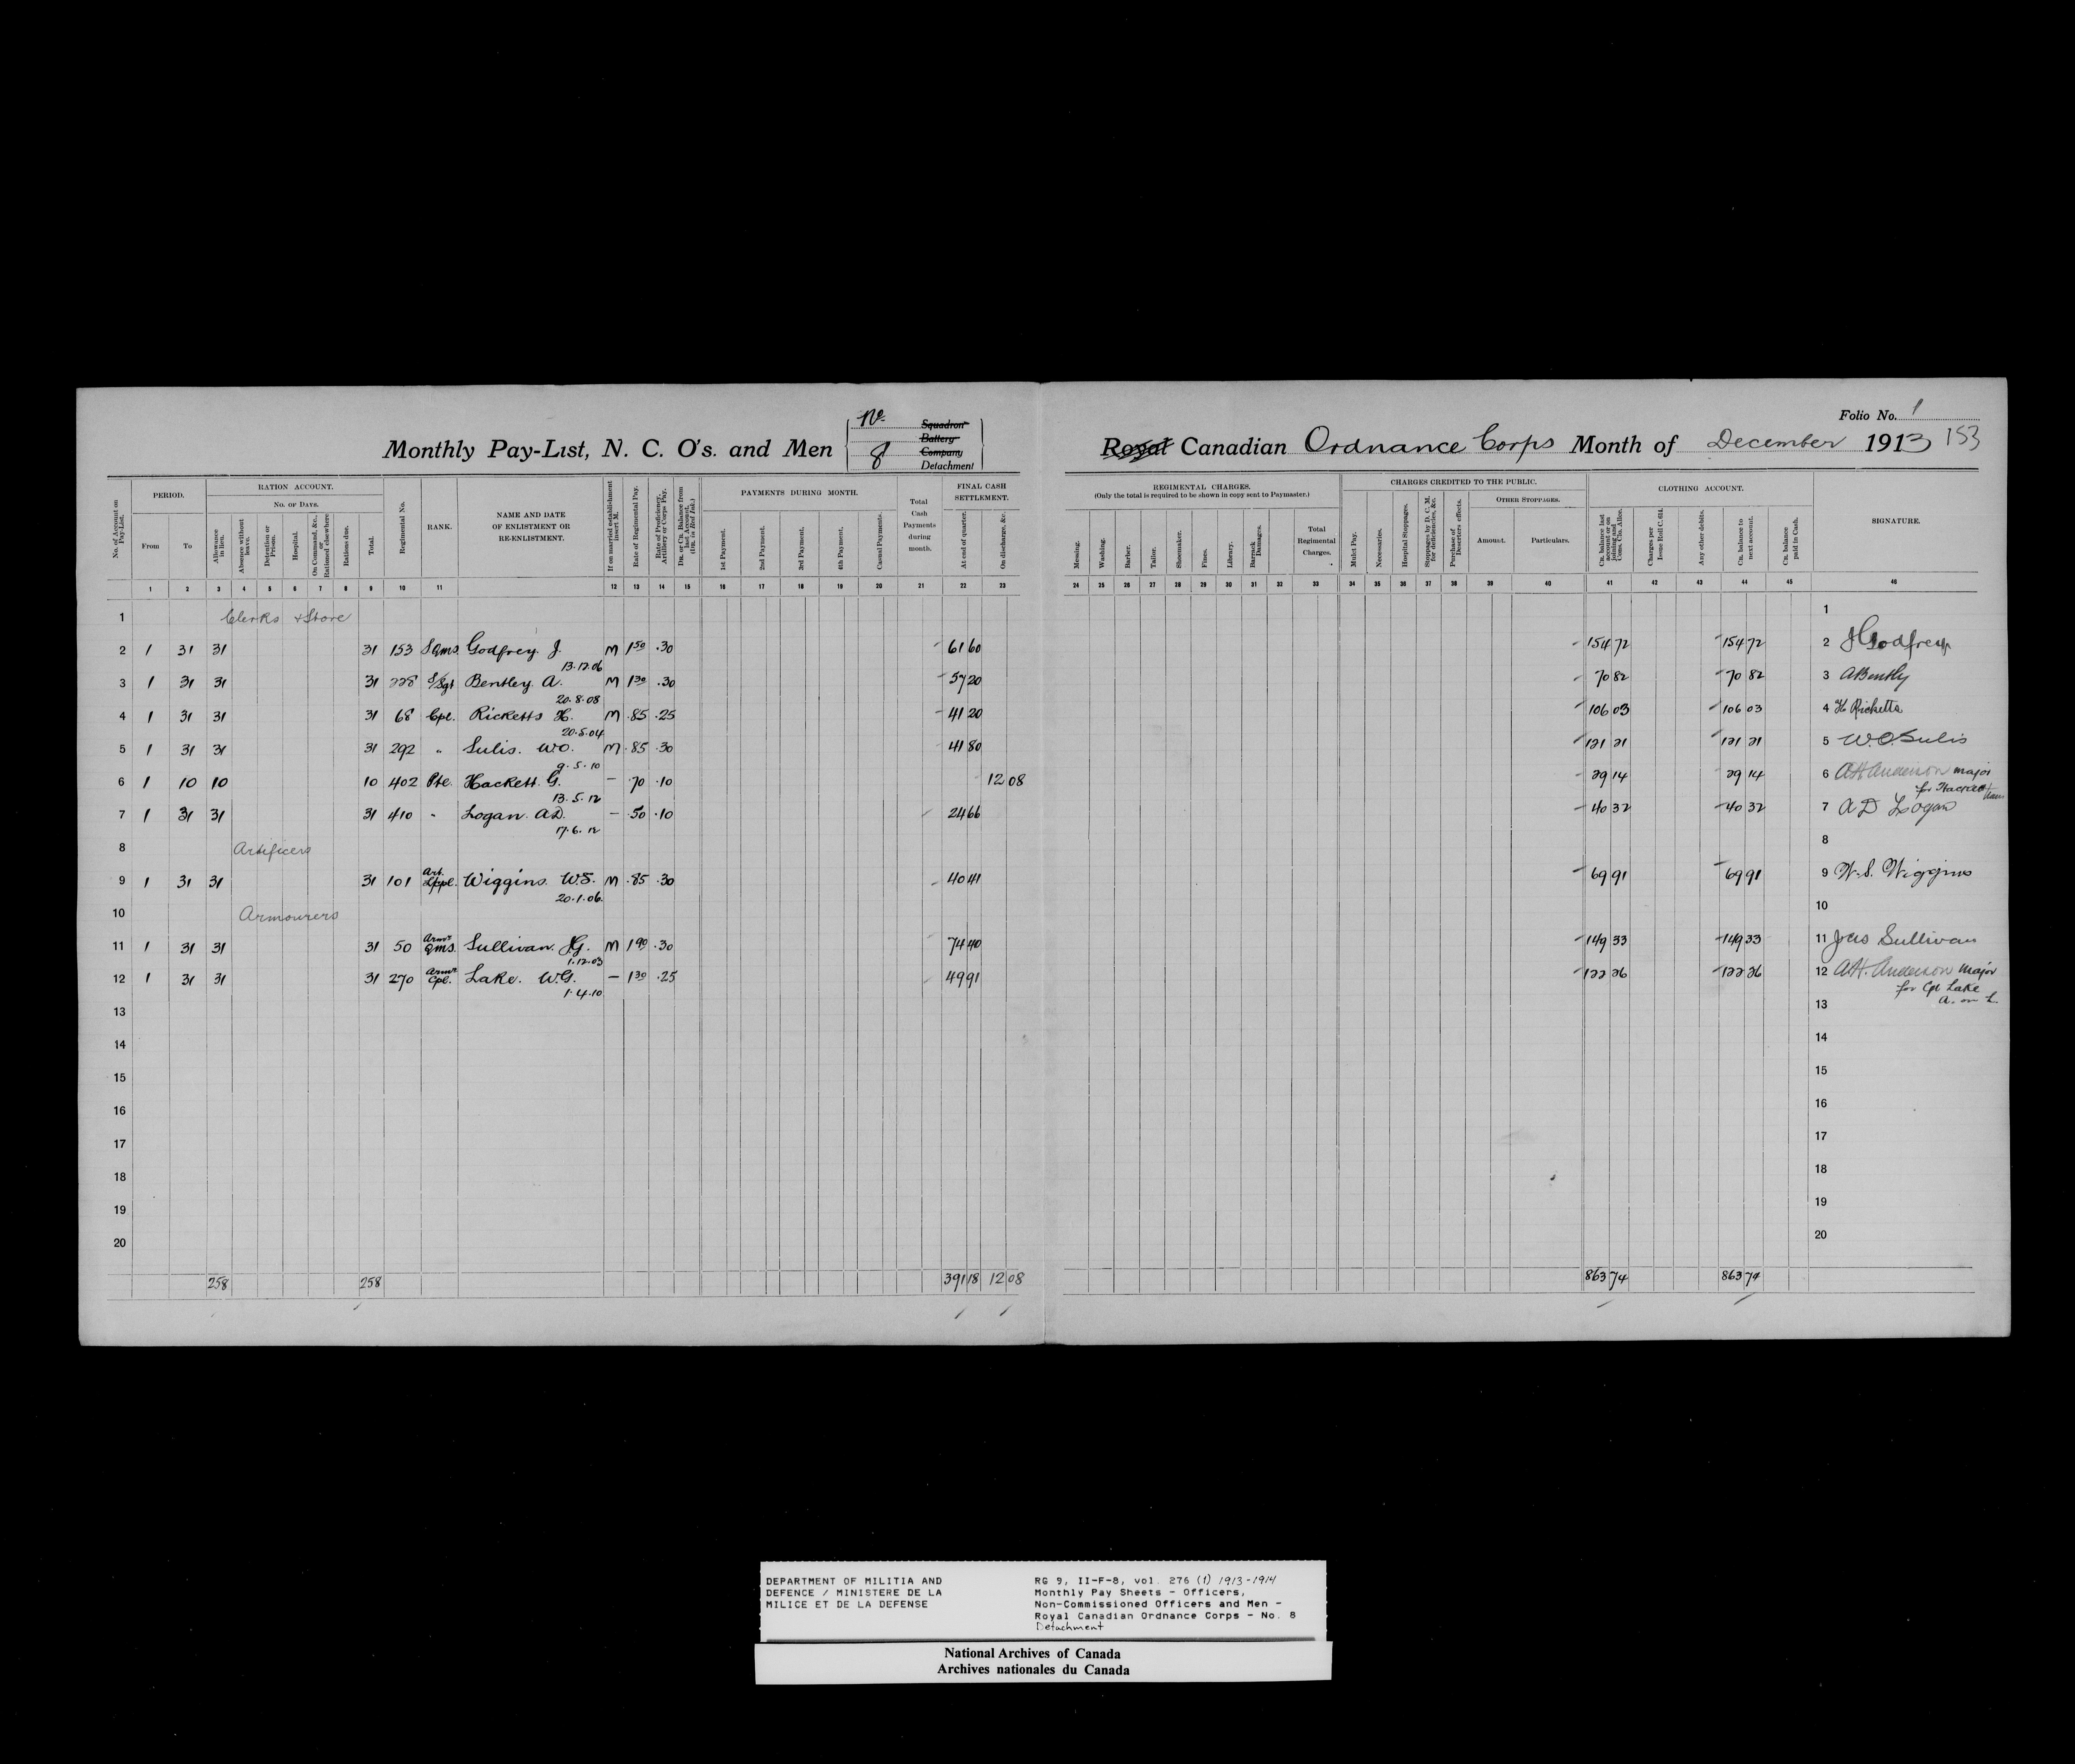 Folio No. 1
Monthly Pay-List, N. C. O's. and Men
No. 8
Squadron
Battery
Company
Detachment
Royal Canadian Ordnance Corps Month of December 1913 153
No. of Account on Pay-List.
PERIOD.
From
To
RATION ACCOUNT.
No. of Days.
Allowance in lieu.
Absence without leave.
Detention or Prison.
Hospital.
On Command, &c., or Rationed elsewhere
Rations due.
Total.
Regimental No.
RANK.
NAME AND DATE OF ENLISTMENT OR RE-ENLISTMENT.
If on married establishment insert M.
Rate of Regimental Pay.
Rate of Proficiency, Artillery or Corps Pay.
Dr. or Cr. Balance from last Account. (Dr. in Red Ink.)
PAYMENTS DURING MONTH.
1st Payment.
2nd Payment.
3rd Payment.
4th Payment.
Casual Payments.
Total Cash Payments during month.
FINAL CASH SETTLEMENT.
At end of quarter.
On discharge, &c.
REGIMENTAL CHARGES.
(Only the total is required to be shown in copy sent to Paymaster.)
Messing.
Washing.
Barber.
Tailor.
Shoemaker.
Fines.
Library.
Barrack Damages.
Total Regimental Charges.
CHARGES CREDITED TO THE PUBLIC.
Mulct Pay.
Necessaries.
Hospital Stoppages.
Stoppages by D. C. M. for deficiencies, &c.
Purchase of Deserters effects.
OTHER STOPPAGES.
Amount.
Particulars.
CLOTHING ACCOUNT.
Cr. balance last account or on joining and Cons. Clo. Allce.
Charges per Issue Roll C. 614.
Any other debits.
Cr. balance to next account.
Cr. balance paid in Cash.
SIGNATURE.
1 2 3 4 5 6 7 8 9 10 11 12 13 14 15 16 17 18 19 20 21 22 23 24 25 26 27 28 29 30 31 32 33 34 35 36 37 38 39 40 41 42 43 44 45 46
1 Clerks & Store 1
2 1 31 31 31 153 SQms. Godfrey. J. M 1 50 .30 61 60 154 72 154 72 2 J Godfrey
13.12.06
3 1 31 31 31 228 S/Sgt Bentley. A. M 1 30 .30 57 20 70 82 70 82 3 A Bently
20.8.08
4 1 31 31 31 68 Cpl. Ricketts H. M .85 .25 41 20 106 03 106 03 4 H Ricketts
20.5.04
5 1 31 31 31 292 " Sulis. WO. M .85 .30 41 80 121 21 121 21 5 W.O. Sulis
9.5.10
6 1 10 10 10 402 Pte. Hackett. G. – .70 .10 12 08 29 14 29 14 6 A H Anderson major
13.5.12 for Hackett
7 1 31 31 31 410 " Logan. A.D. – .50 .10 24 66 40 32 40 32 7 A D Logan
17.6.12
8 Artificers 8
9 1 31 31 31 101 Art. Wiggins. W.S. M .85 .30 40 41 69 91 69 91 9 W. S. Wiggins
20.1.06.
10 Armourers 10
11 1 31 31 31 50 Armr Qms. Sullivan. JG. M 1 90 .30 74 40 149 33 149 33 11 Jas Sullivan
1.12.03
12 1 31 31 31 270 Armr Cpl. Lake. W.G. – 1 30 .25 49 91 122 26 122 26 12 A.H. Anderson Major
1.4.10 for Cpl Lake
13 13 A. on L.
14 14
15 15
16 16
17 17
18 18
19 19
20 20
258 258 391 18 12 08 863 74 863 74
DEPARTMENT OF MILITIA AND
DEFENCE / MINISTERE DE LA
MILICE ET DE LA DEFENSE
RG 9, II-F-8, vol. 276 (1) 1913-1914
Monthly Pay Sheets - Officers,
Non-Commissioned Officers and Men -
Royal Canadian Ordnance Corps - No. 8
Detachment
National Archives of Canada
Archives nationales du Canada